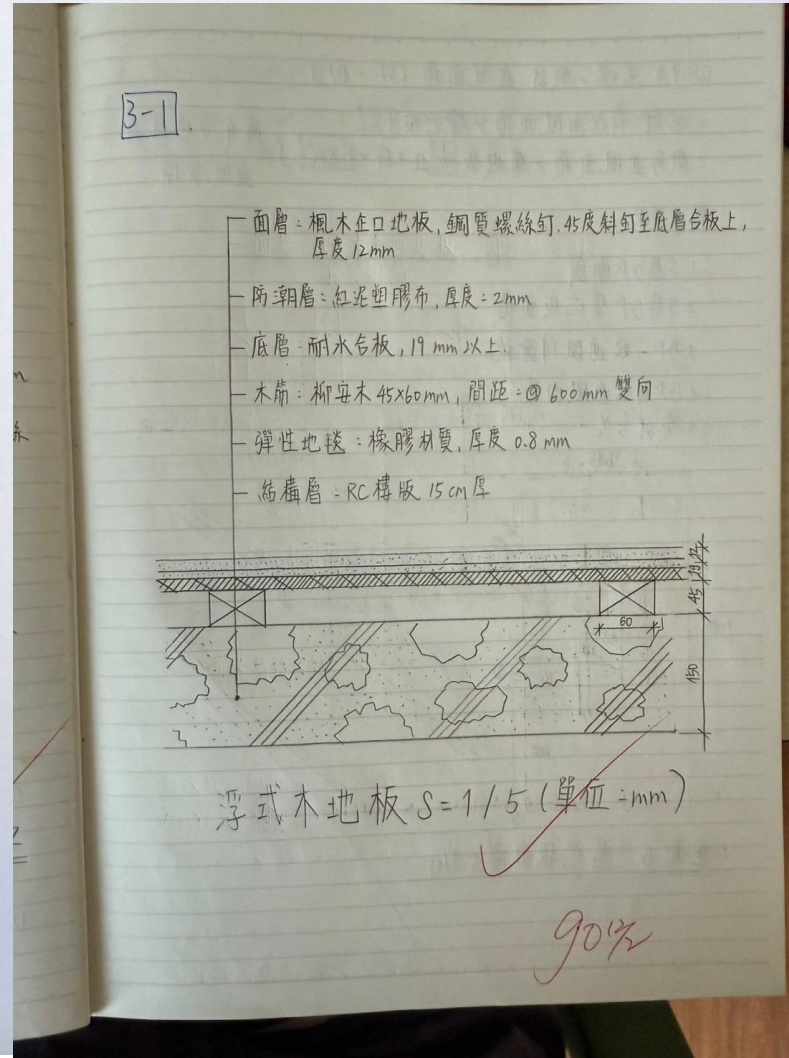 3-1
面層：楓木企口地板，鋼質螺絲釘，45度斜釘至底層合板上，
厚度12mm
防潮層：紅泥塑膠布，厚度=2mm
底層：耐水合板，19 mm以上.
木筋：柳安木45×60mm，間距：@ 600mm 雙向
彈性地毯：橡膠材質，厚度 0.8 mm
結構層：RC樓版 15cm厚
12
19
45
60
150
浮式木地板 S=1/5 (單位:mm)
90